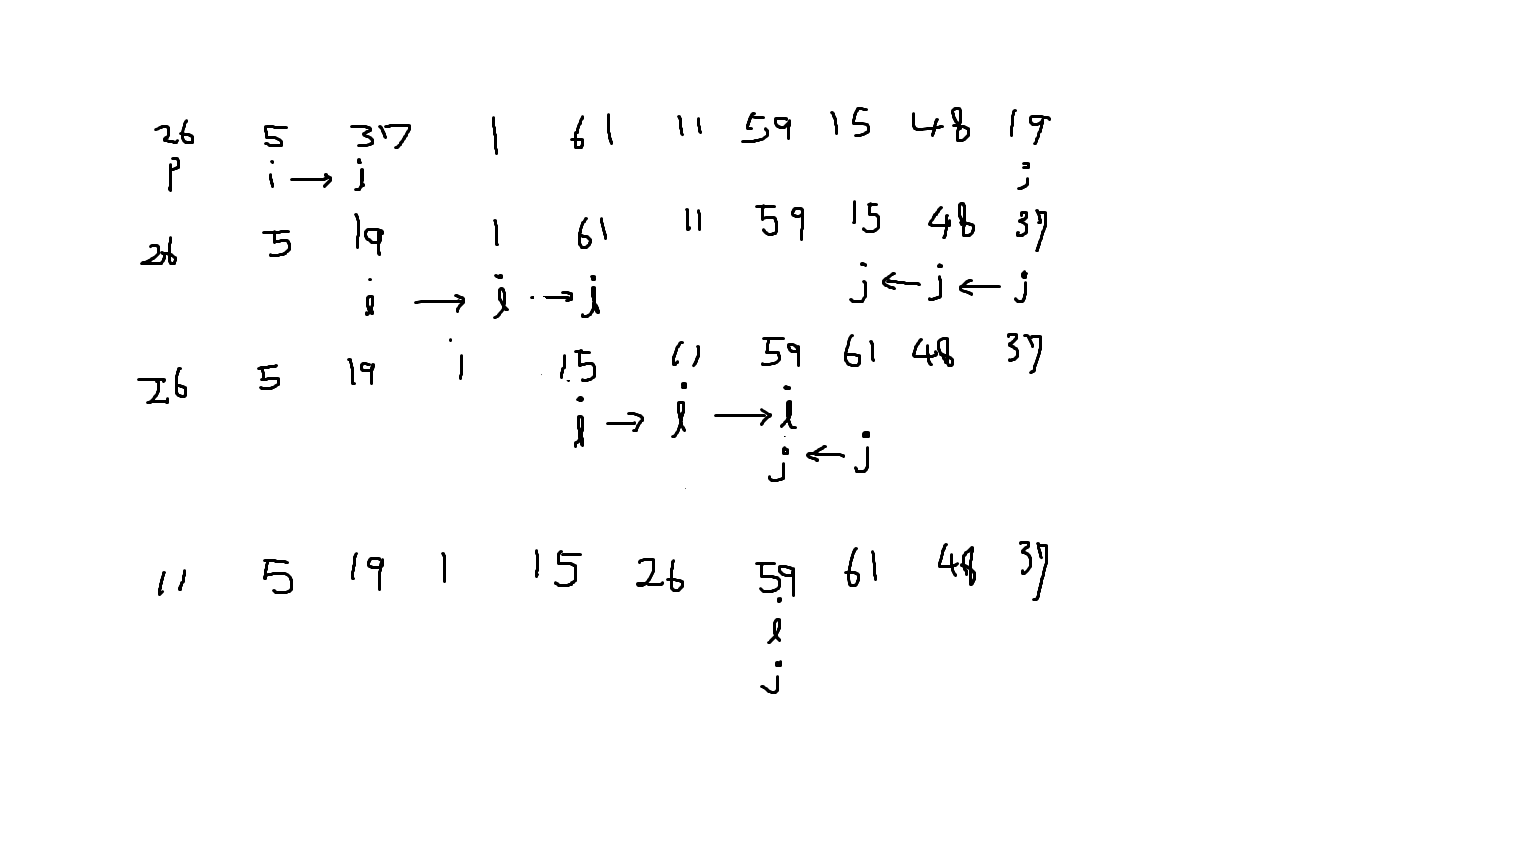 26 5 37 1 61 11 59 15 48 19
P i → i j
26 5 19 1 61 11 59 15 48 37
i → i → i j ← j ← j
26 5 19 1 15 11 59 61 48 37
i → i → i
j ← j
11 5 19 1 15 26 59 61 48 37
i
j